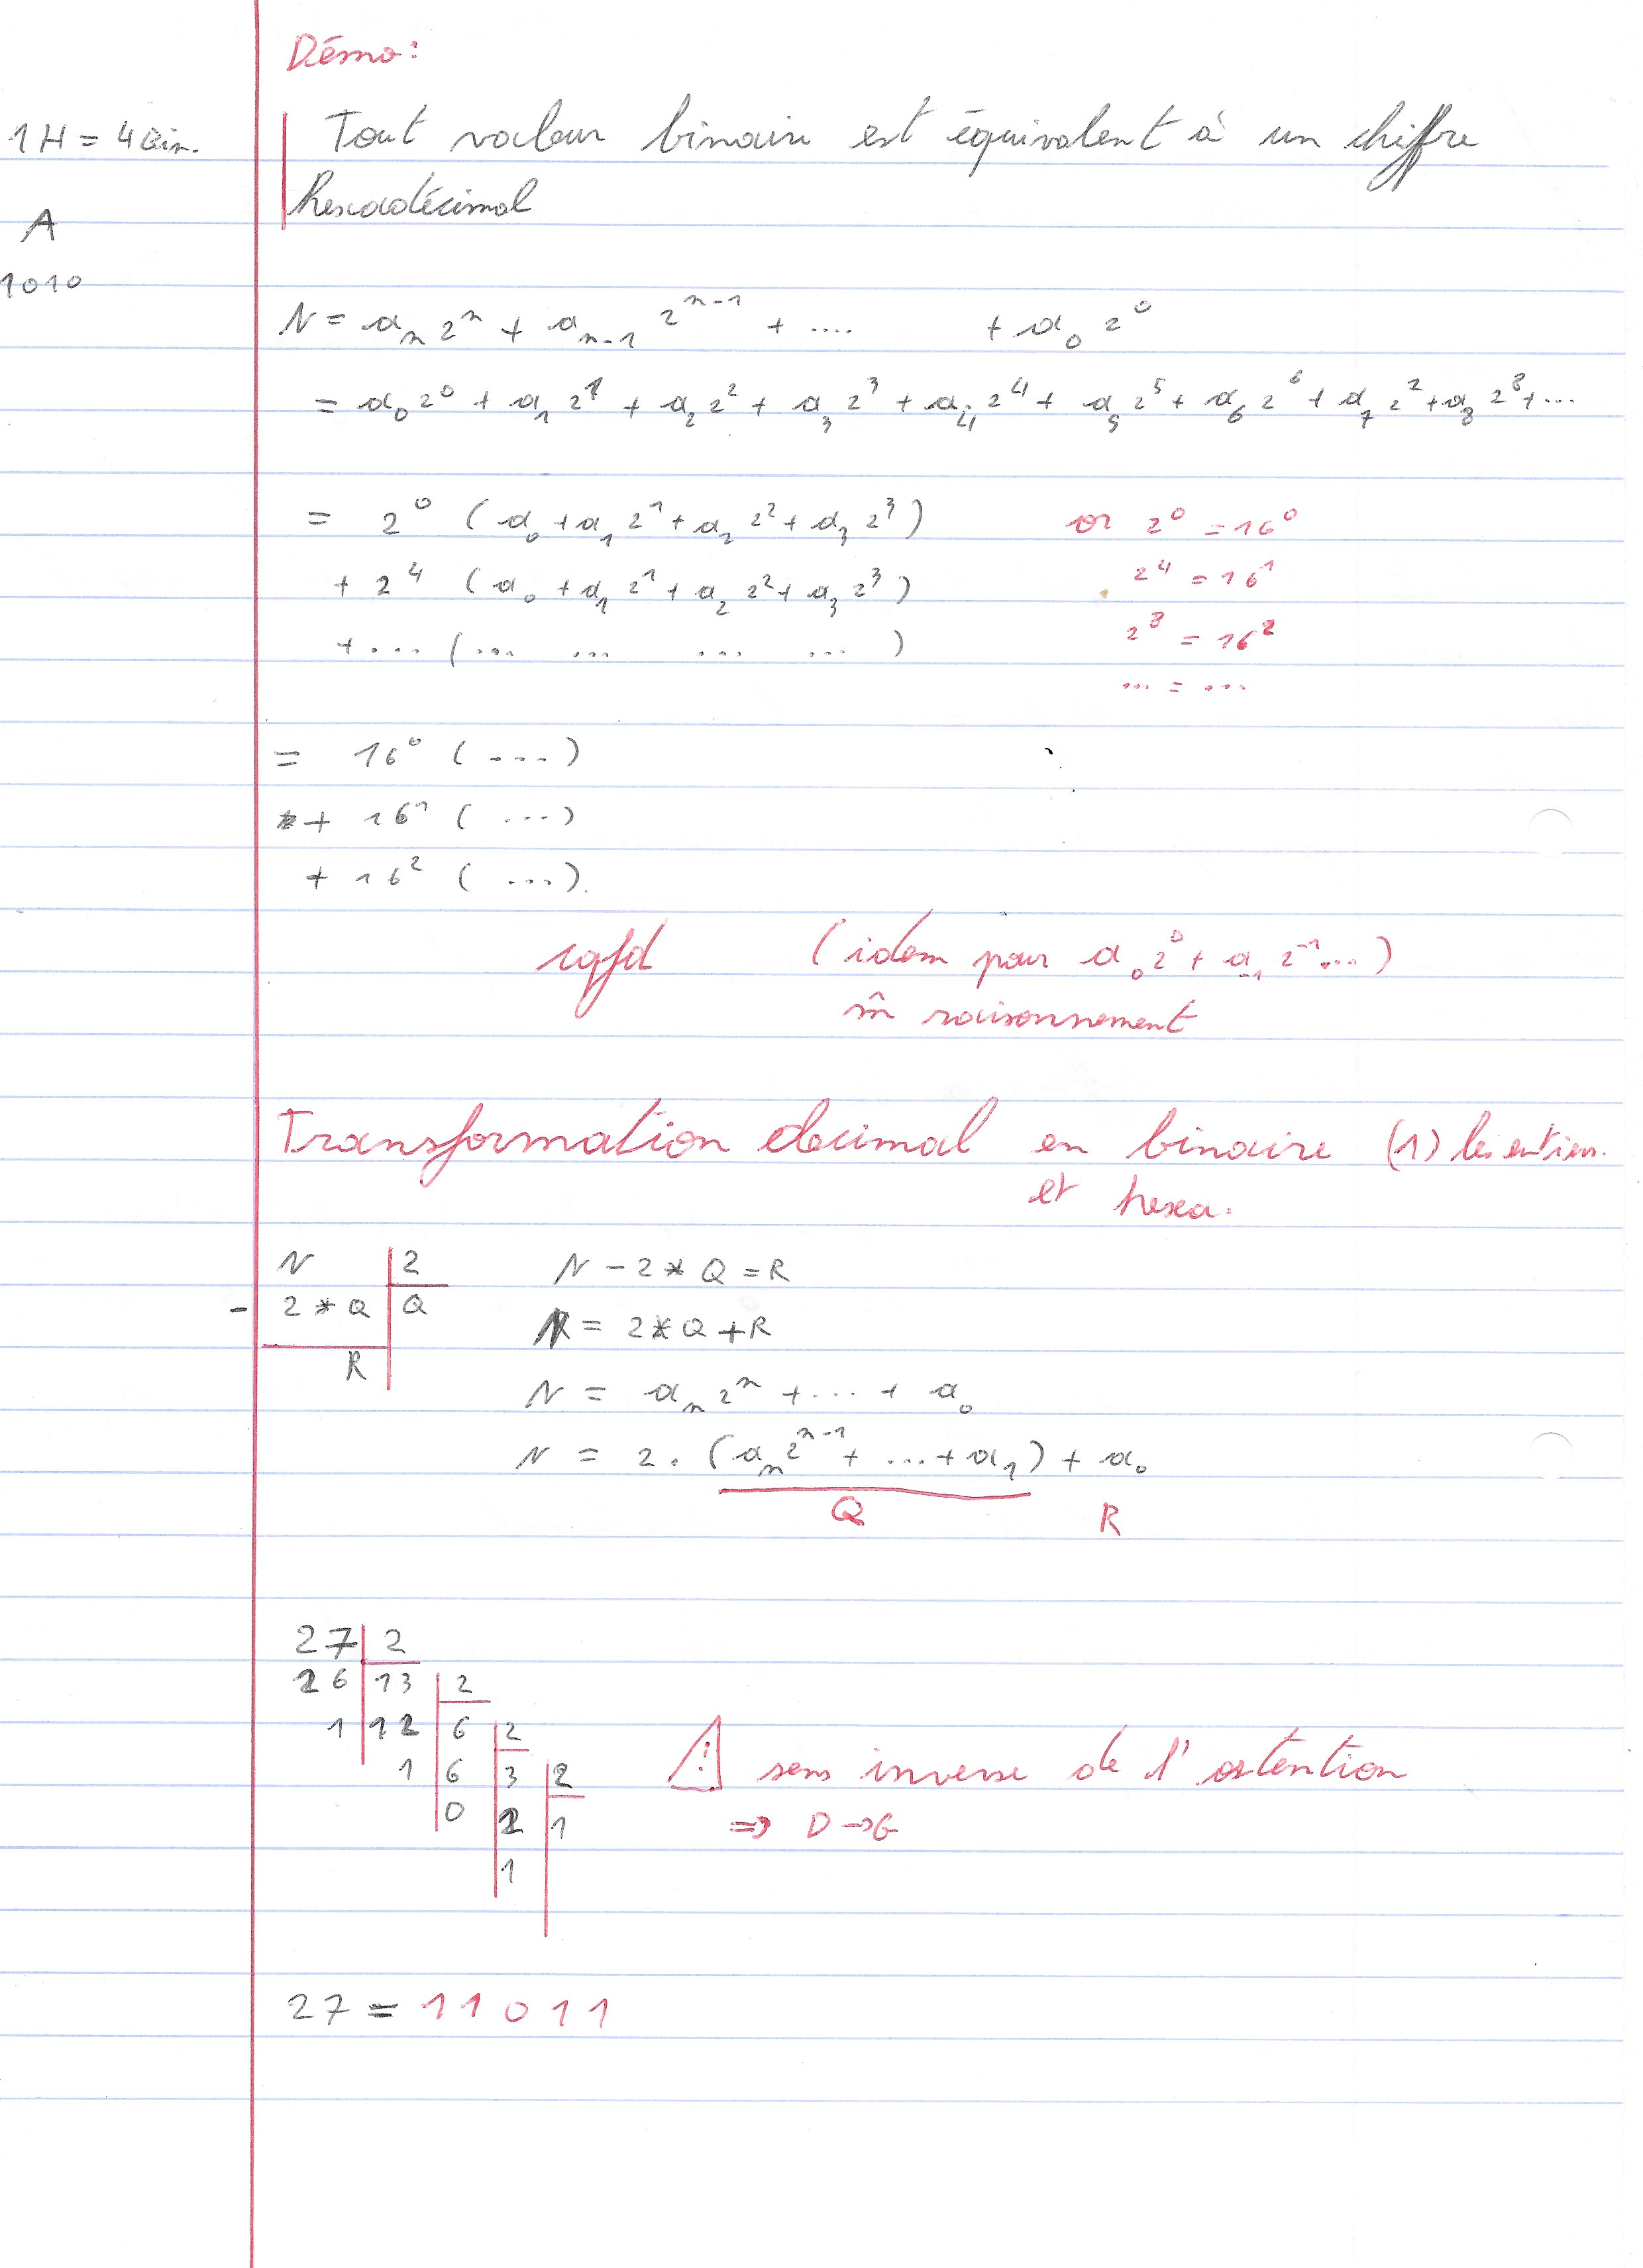 Démo:
1H = 4Bin.
Tout valeur binaire est équivalent à un chiffre
hexadécimal
A
1010
N = aₙ 2ⁿ + aₙ₋₁ 2ⁿ⁻¹ + .... + a₀ 2⁰
= a₀ 2⁰ + a₁ 2¹ + a₂ 2² + a₃ 2³ + a₄ 2⁴ + a₅ 2⁵ + a₆ 2⁶ + a₇ 2² + a₈ 2⁸ + ...
= 2⁰ (a₀ + a₁ 2¹ + a₂ 2² + a₃ 2³) or 2⁰ = 16⁰
+ 2⁴ (a₀ + a₁ 2¹ + a₂ 2² + a₃ 2³) 2⁴ = 16¹
+ ... (... ... ... ...) 2⁸ = 16²
... = ...
= 16⁰ (...)
+ 16¹ (...)
+ 16² (...).
cqfd (idem pour a₀ 2⁰ + a₋₁ 2⁻¹ ...)
m̂ raisonnement
Transformation decimal en binaire (1) les entiers.
et hexa.
N | 2 N - 2 * Q = R
- 2 * Q | Q N = 2 * Q + R
R
N = aₙ 2ⁿ + ... + a₀
N = 2 . (aₙ 2ⁿ⁻¹ + ... + a₁) + a₀
Q R
27 | 2
26 | 13 | 2
1 | 12 | 6 | 2
1 | 6 | 3 | 2
0 | 2 | 1
1
! sens inverse de l'ostention
=> D→G
27 = 11011